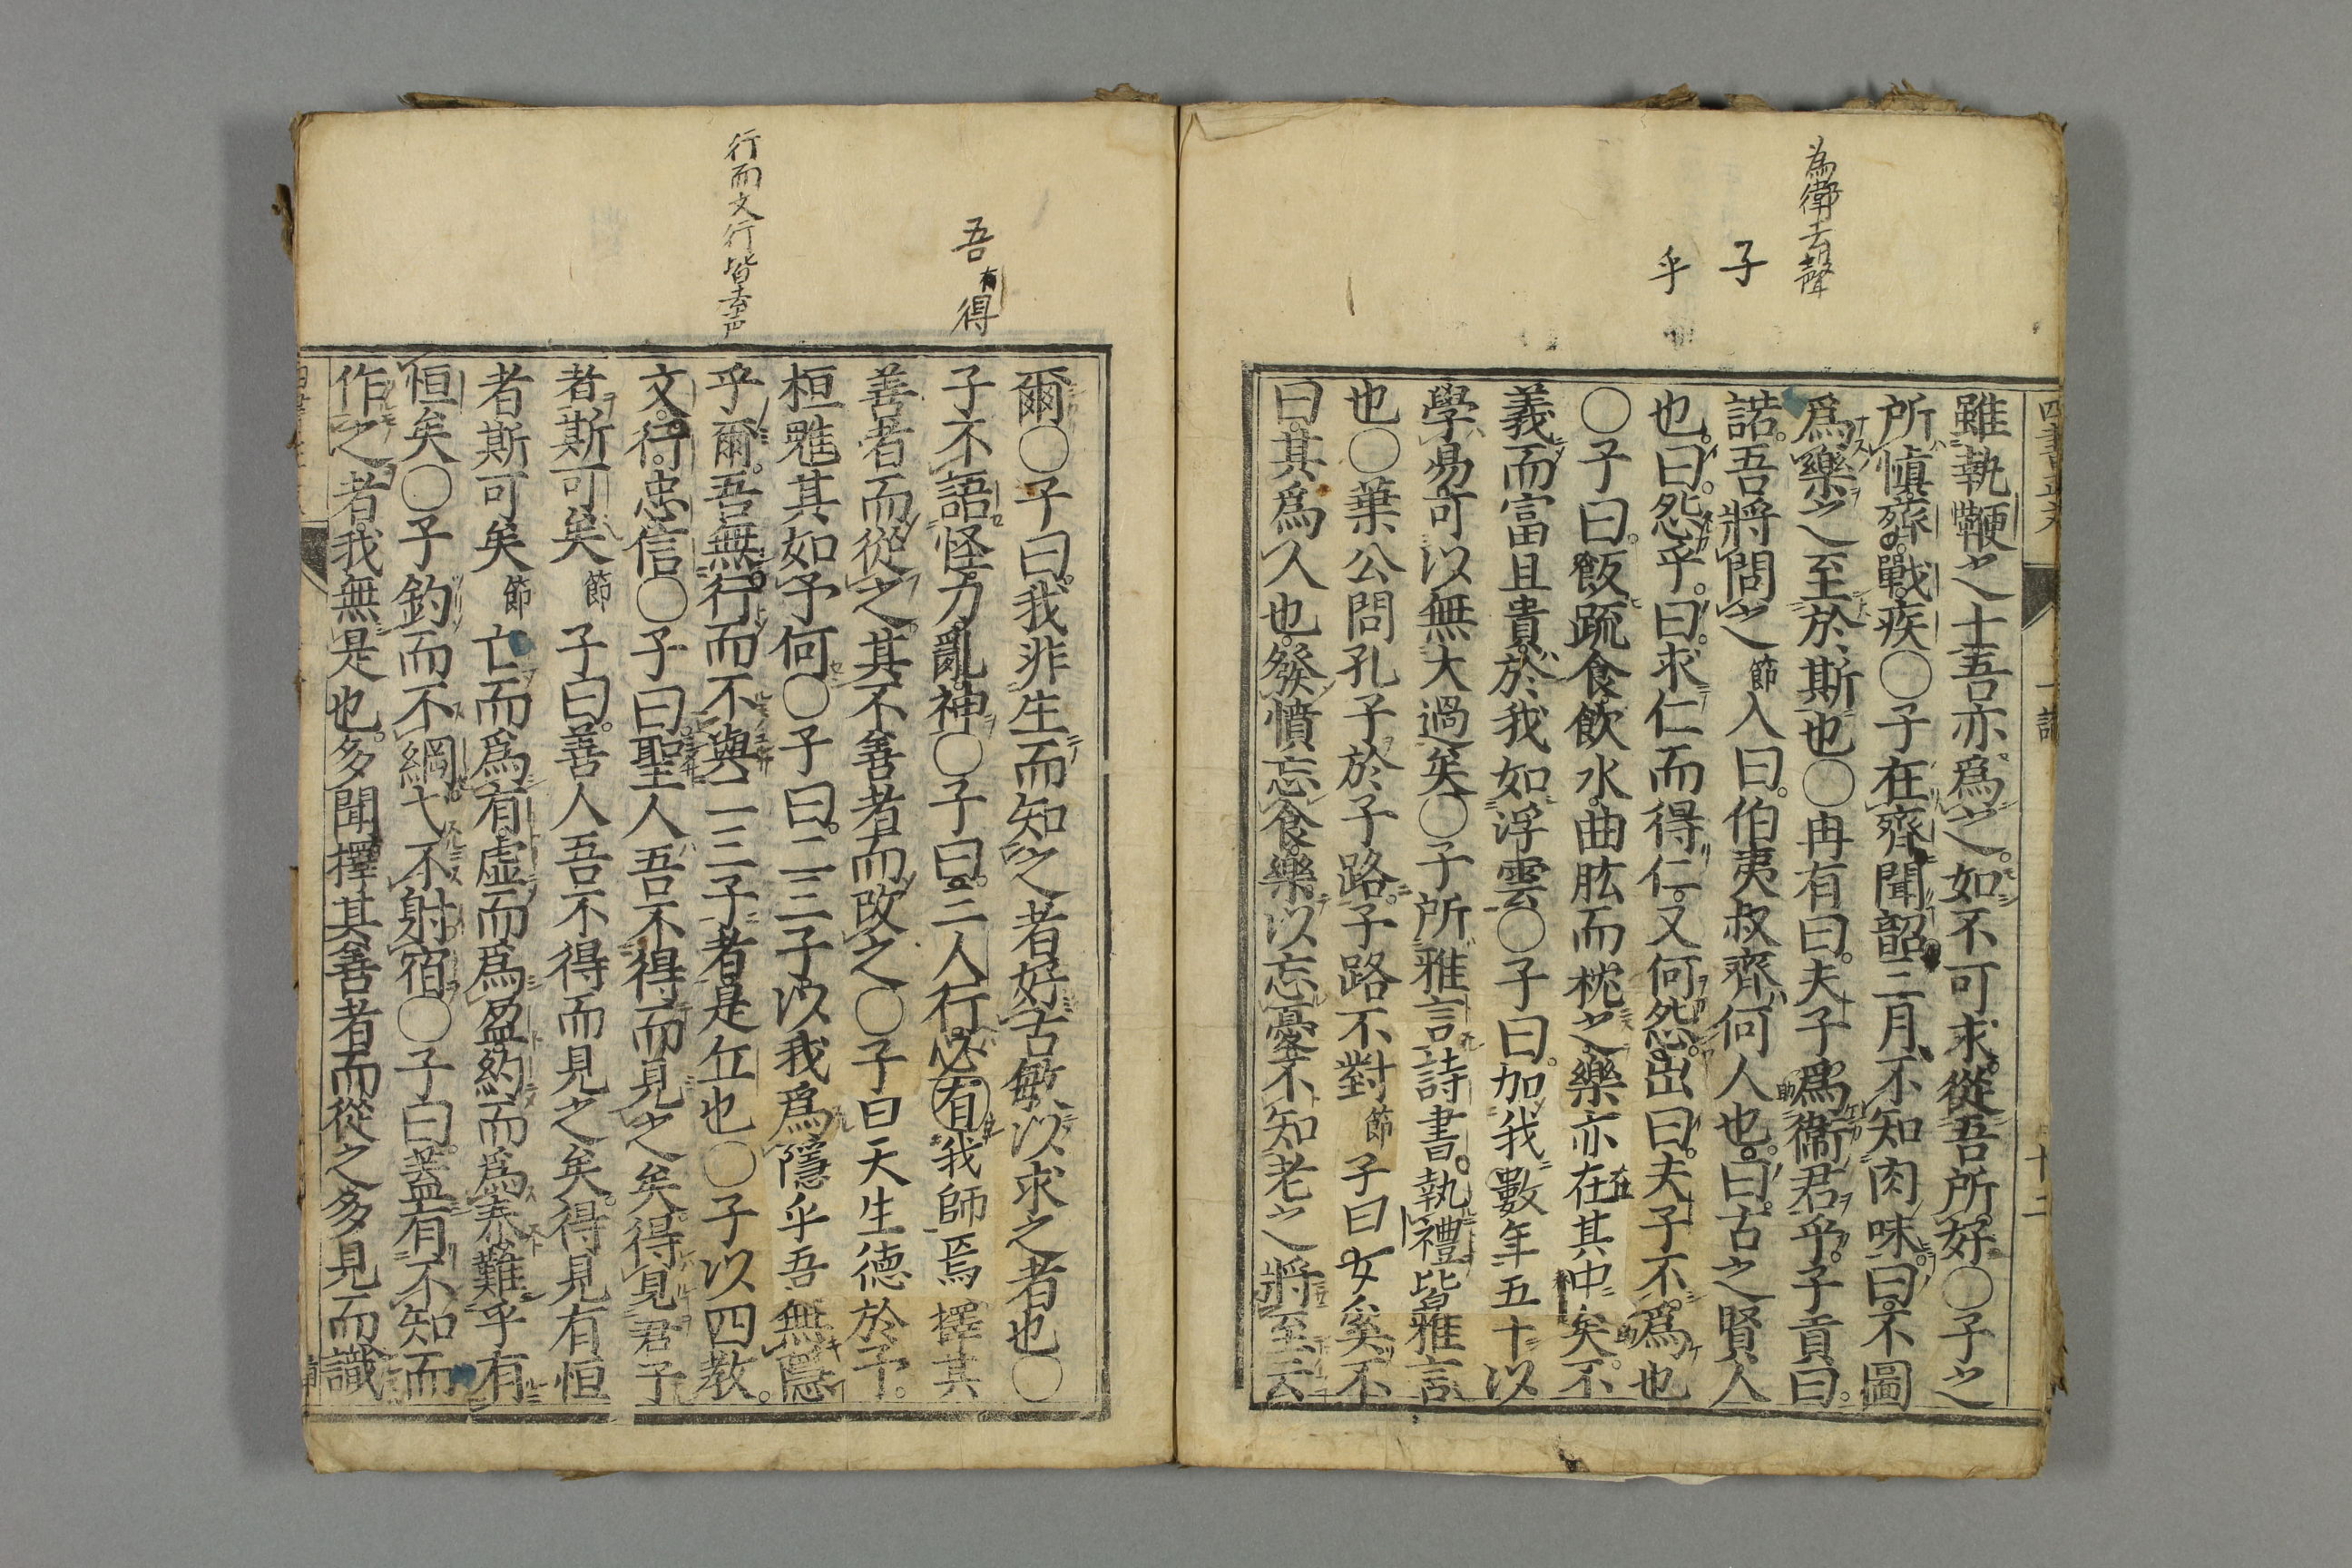 為衛去聲
子
乎
雖執鞭之士吾亦爲之。如不可求。從吾所好〇子之
所愼。齊。戰。疾〇子在齊聞韶三月不知肉味。曰。不圖
爲樂之至於斯也〇冉有曰。夫子爲衞君乎。子貢曰。
諾。吾將問之節入曰。伯夷叔齊何人也。曰。古之賢人
也。曰。怨乎。曰。求仁而得仁。又何怨。出曰。夫子不爲也
〇子曰。飯疏食飲水。曲肱而枕之。樂亦在其中矣。不
義而富且貴。於我如浮雲〇子曰。加我數年五十以
學易可以無大過矣〇子所雅言詩書。執禮皆雅言
也〇葉公問孔子於子路。子路不對節子曰女奚不
曰。其爲人也。發憤忘食。樂以忘憂不知老之將至云
吾有得
行而文行皆去声
爾〇子曰。我非生而知之者好古敏以求之者也〇
子不語怪。力。亂。神〇子曰。三人行。必有我師焉擇其
善者而從之。其不善者而改之〇子曰天生德於予。
桓魋其如予何〇子曰。二三子以我爲隱乎吾無隱
乎爾。吾無行而不與二三子者是丘也〇子以四教。
文。行。忠。信〇子曰。聖人吾不得而見之矣。得見君子
者斯可矣節子曰。善人吾不得而見之矣。得見有恒
者斯可矣節亡而爲有。虛而爲盈。約而爲泰。難乎有
恒矣〇子釣而不綱。弋不射宿〇子曰。蓋有不知而
作之者。我無是也。多聞擇其善者而從之多見而識